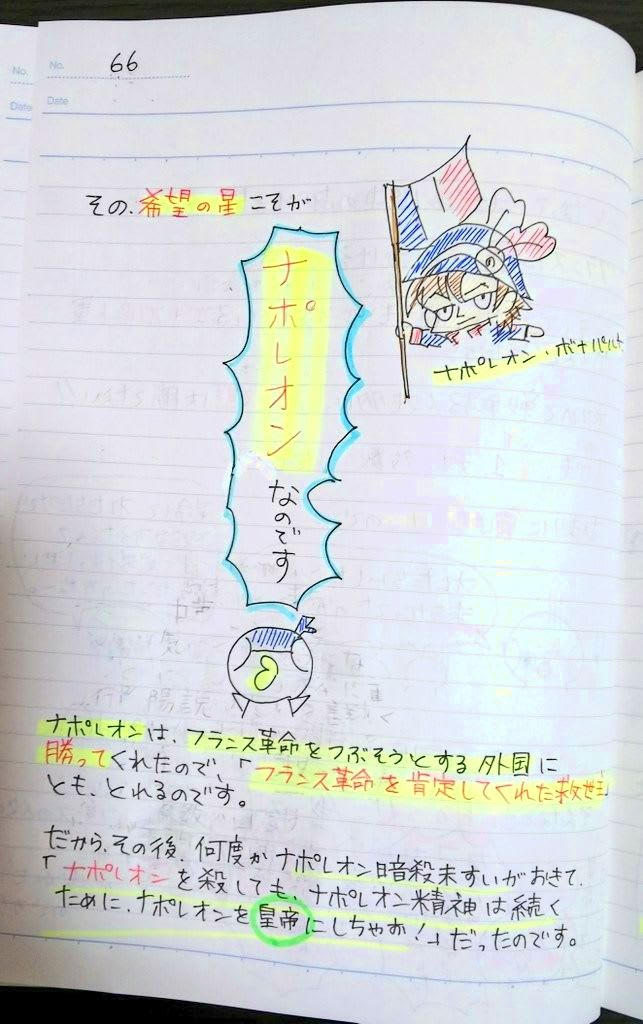 No.
Date
No. 66
Date
その、希望の星こそが
ナポレオン
なのです
ナポレオン・ボナパルト
ナポレオンは、フランス革命をつぶそうとする外国に
勝ってくれたので、「フランス革命を肯定してくれた救世主」
とも、とれるのです。
だから、その後、何度かナポレオン暗殺未すいがおきて、
「ナポレオンを殺しても、ナポレオン精神は続く
ために、ナポレオンを皇帝にしちゃお!」だったのです。